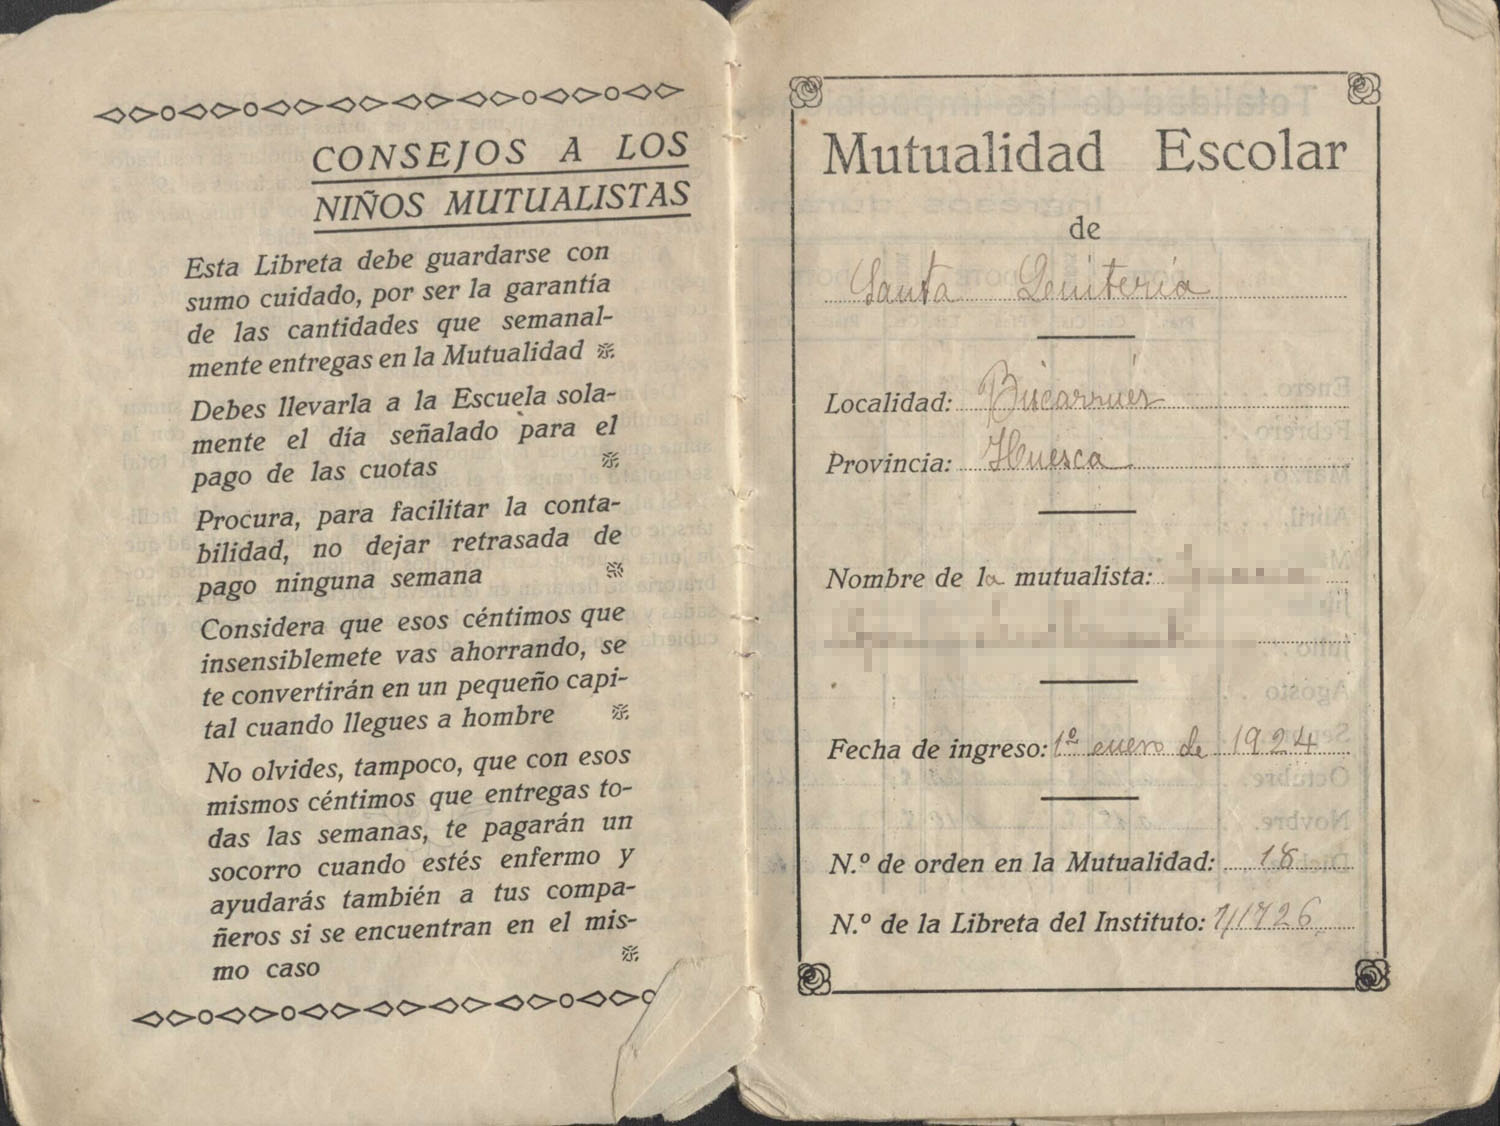 CONSEJOS A LOS
NIÑOS MUTUALISTAS
Esta Libreta debe guardarse con
sumo cuidado, por ser la garantía
de las cantidades que semanal-
mente entregas en la Mutualidad
Debes llevarla a la Escuela sola-
mente el día señalado para el
pago de las cuotas
Procura, para facilitar la conta-
bilidad, no dejar retrasada de
pago ninguna semana
Considera que esos céntimos que
insensiblemete vas ahorrando, se
te convertirán en un pequeño capi-
tal cuando llegues a hombre
No olvides, tampoco, que con esos
mismos céntimos que entregas to-
das las semanas, te pagarán un
socorro cuando estés enfermo y
ayudarás también a tus compa-
ñeros si se encuentran en el mis-
mo caso
Mutualidad Escolar
de
Santa Quiteria
Localidad: Biscarrués
Provincia: Huesca
Nombre de la mutualista:
Fecha de ingreso: 1º enero de 1924
N.º de orden en la Mutualidad: 18
N.º de la Libreta del Instituto: